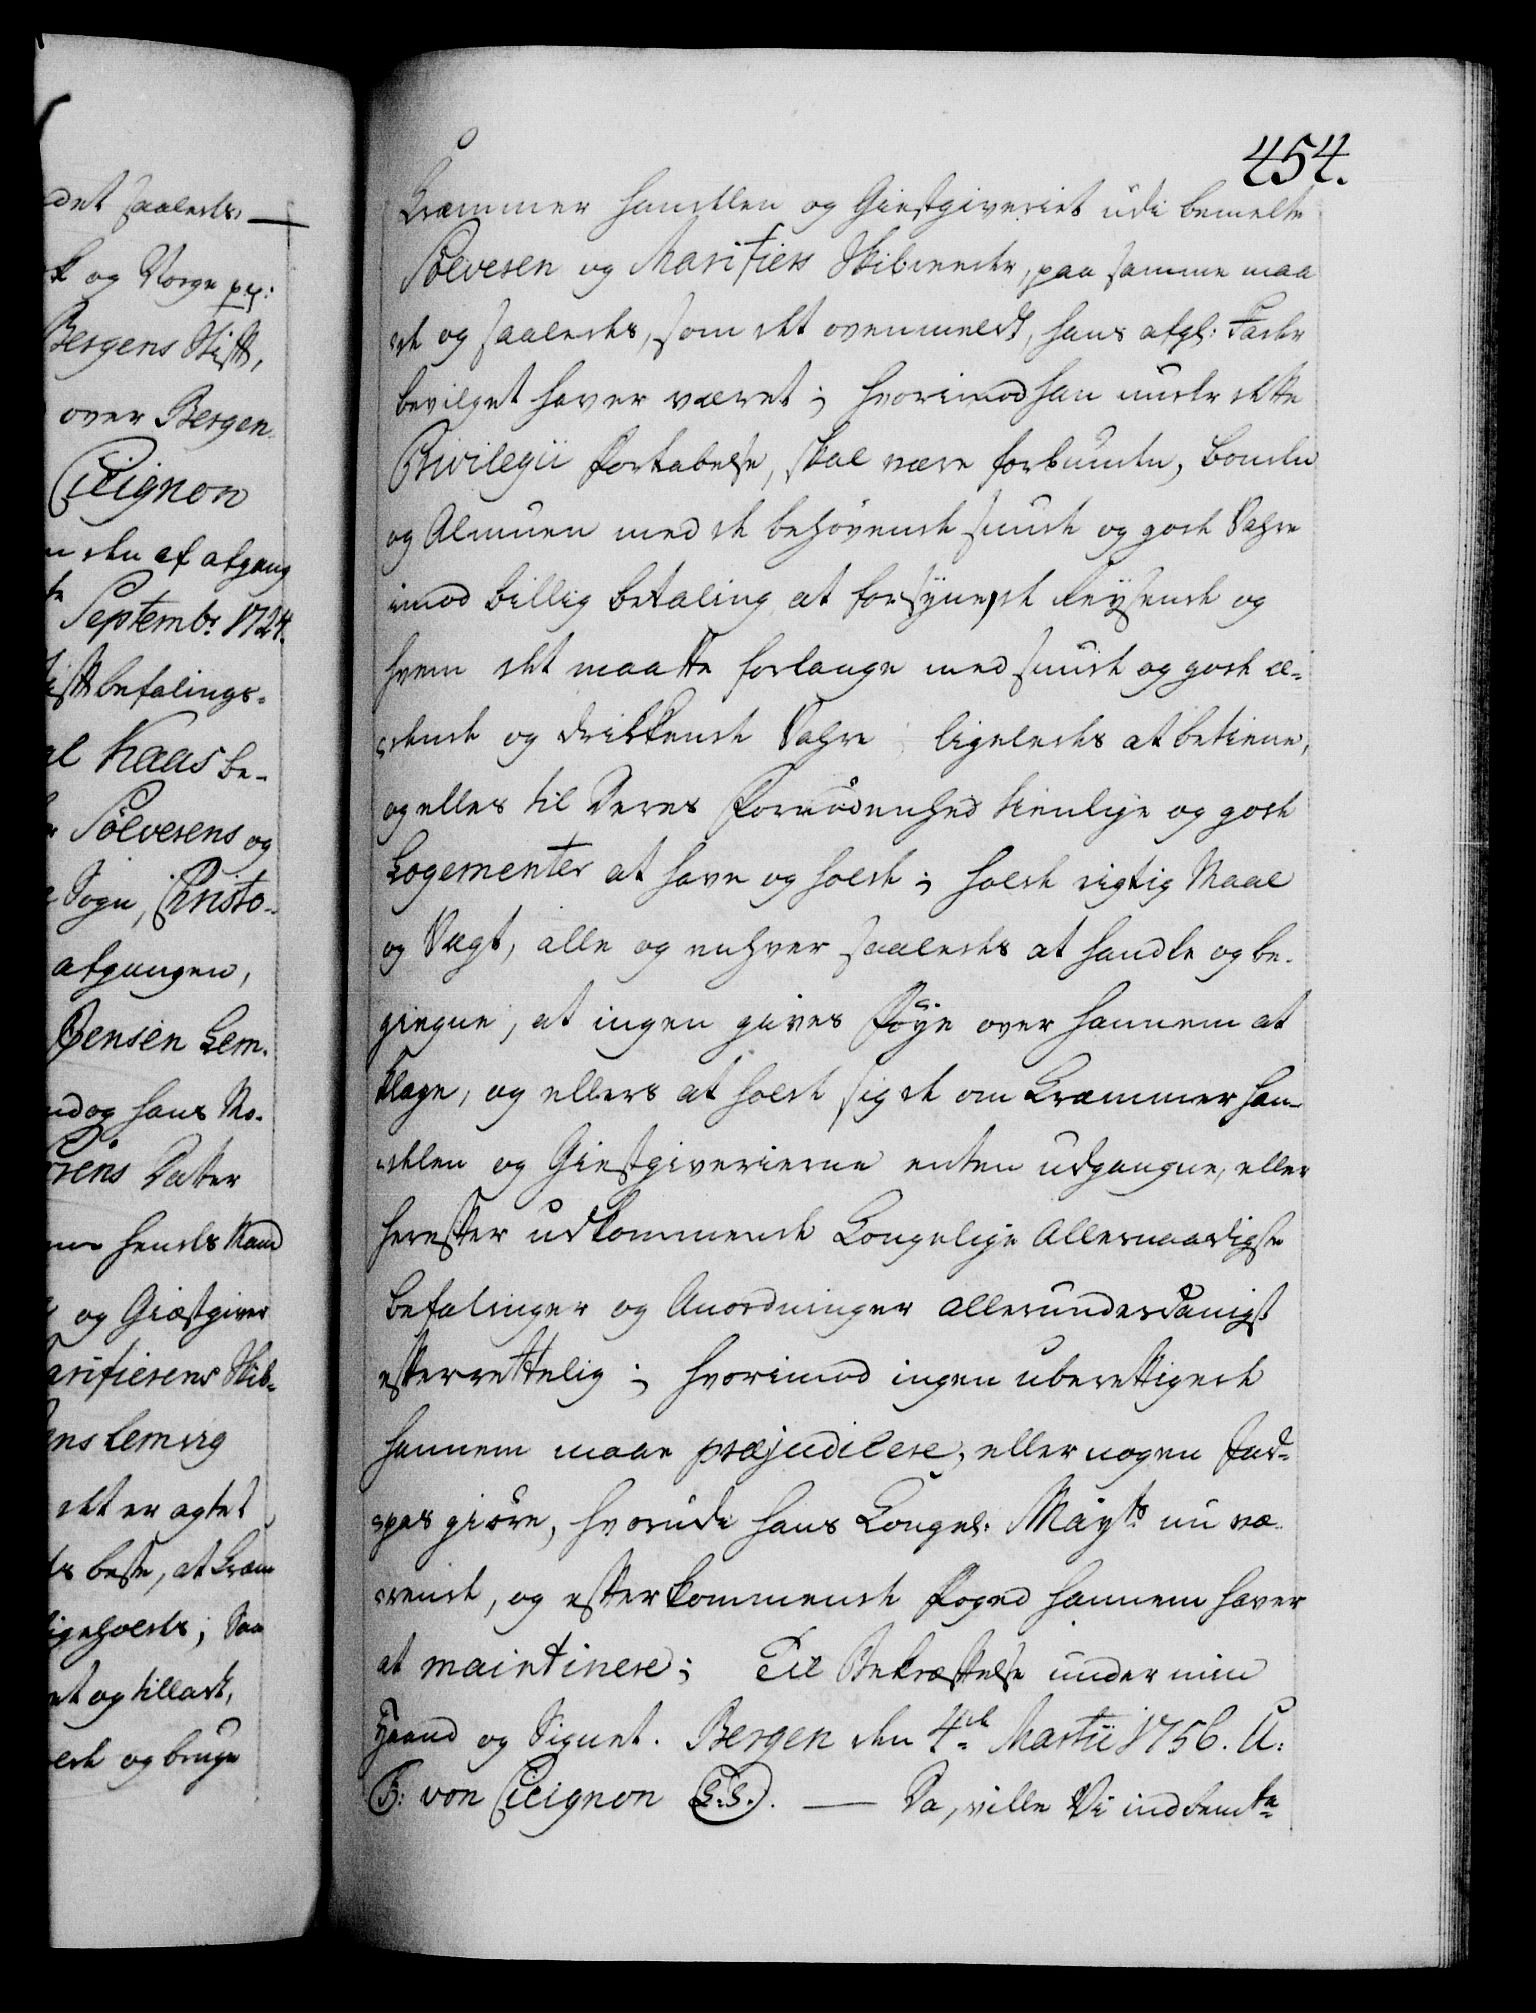 det saaledes. —
k og Norge pp:
Bergens Stift,
over Bergen
Cicignon
n den af afgang
te Septembr 1724.
iftbefalings-
al Kaas be-
Sølvesens og
Sogn, Christo-
afgangen,
Jensen Lem-
endog hans Mo-
rsens Datter
hendes Mand
og Giæstgiver
arifiersens Skib-
ens Lemvig
det er agtet
ts beste, at Kræm
ligeholdes; Saa
et og tilladt,
ede og bruge
454.
Kræmmer Handelen og Giestgiveriet udi bemelte
Sølvesen og Marifiers Skibreede, paa samme maa
de og saaledes, som det ovenmeldt, hans afgl: Fader
bevilget haver været; hvorimod han under dette
Privilegii Fortabelse, skal være forbunden, Bonden
og Almuen med de behøvende sunde og gode Vahre
imod billig betaling at forsyne, de Reysende og
hvem det maatte forlange med sunde og gode æ-
dende og drikkende Vahre ligeledes at betiene,
og elles til Deres Fornødenhed tienlige og gode
Logementer at have og holde; holde rigtig Maal
og Vægt, alle og enhver saaledes at handle og be-
giegne, at ingen gives Føye over hannem at
klage, og ellers at holde sig de om Kræmmer Han-
delen og Giestgiverierne enten udgangne, eller
herefter udkommende Kongelige Allernaadigste
befalinger og Anordninger allerunderdanigst
efterrettelig; hvorimod ingen uberettigede
hannem maae præjudicere, eller nogen Ind-
pas giøre, hvorudi hans Kongel: Mayts nu væ-
rende, og efterkommende Foged hannem haver
at maintinere; Til Bekræftelse under min
Haand og Signet. Bergen den 4de Martii 1756. U:
F: von Cicignon (L.S.). — Da, ville Vi indbemte